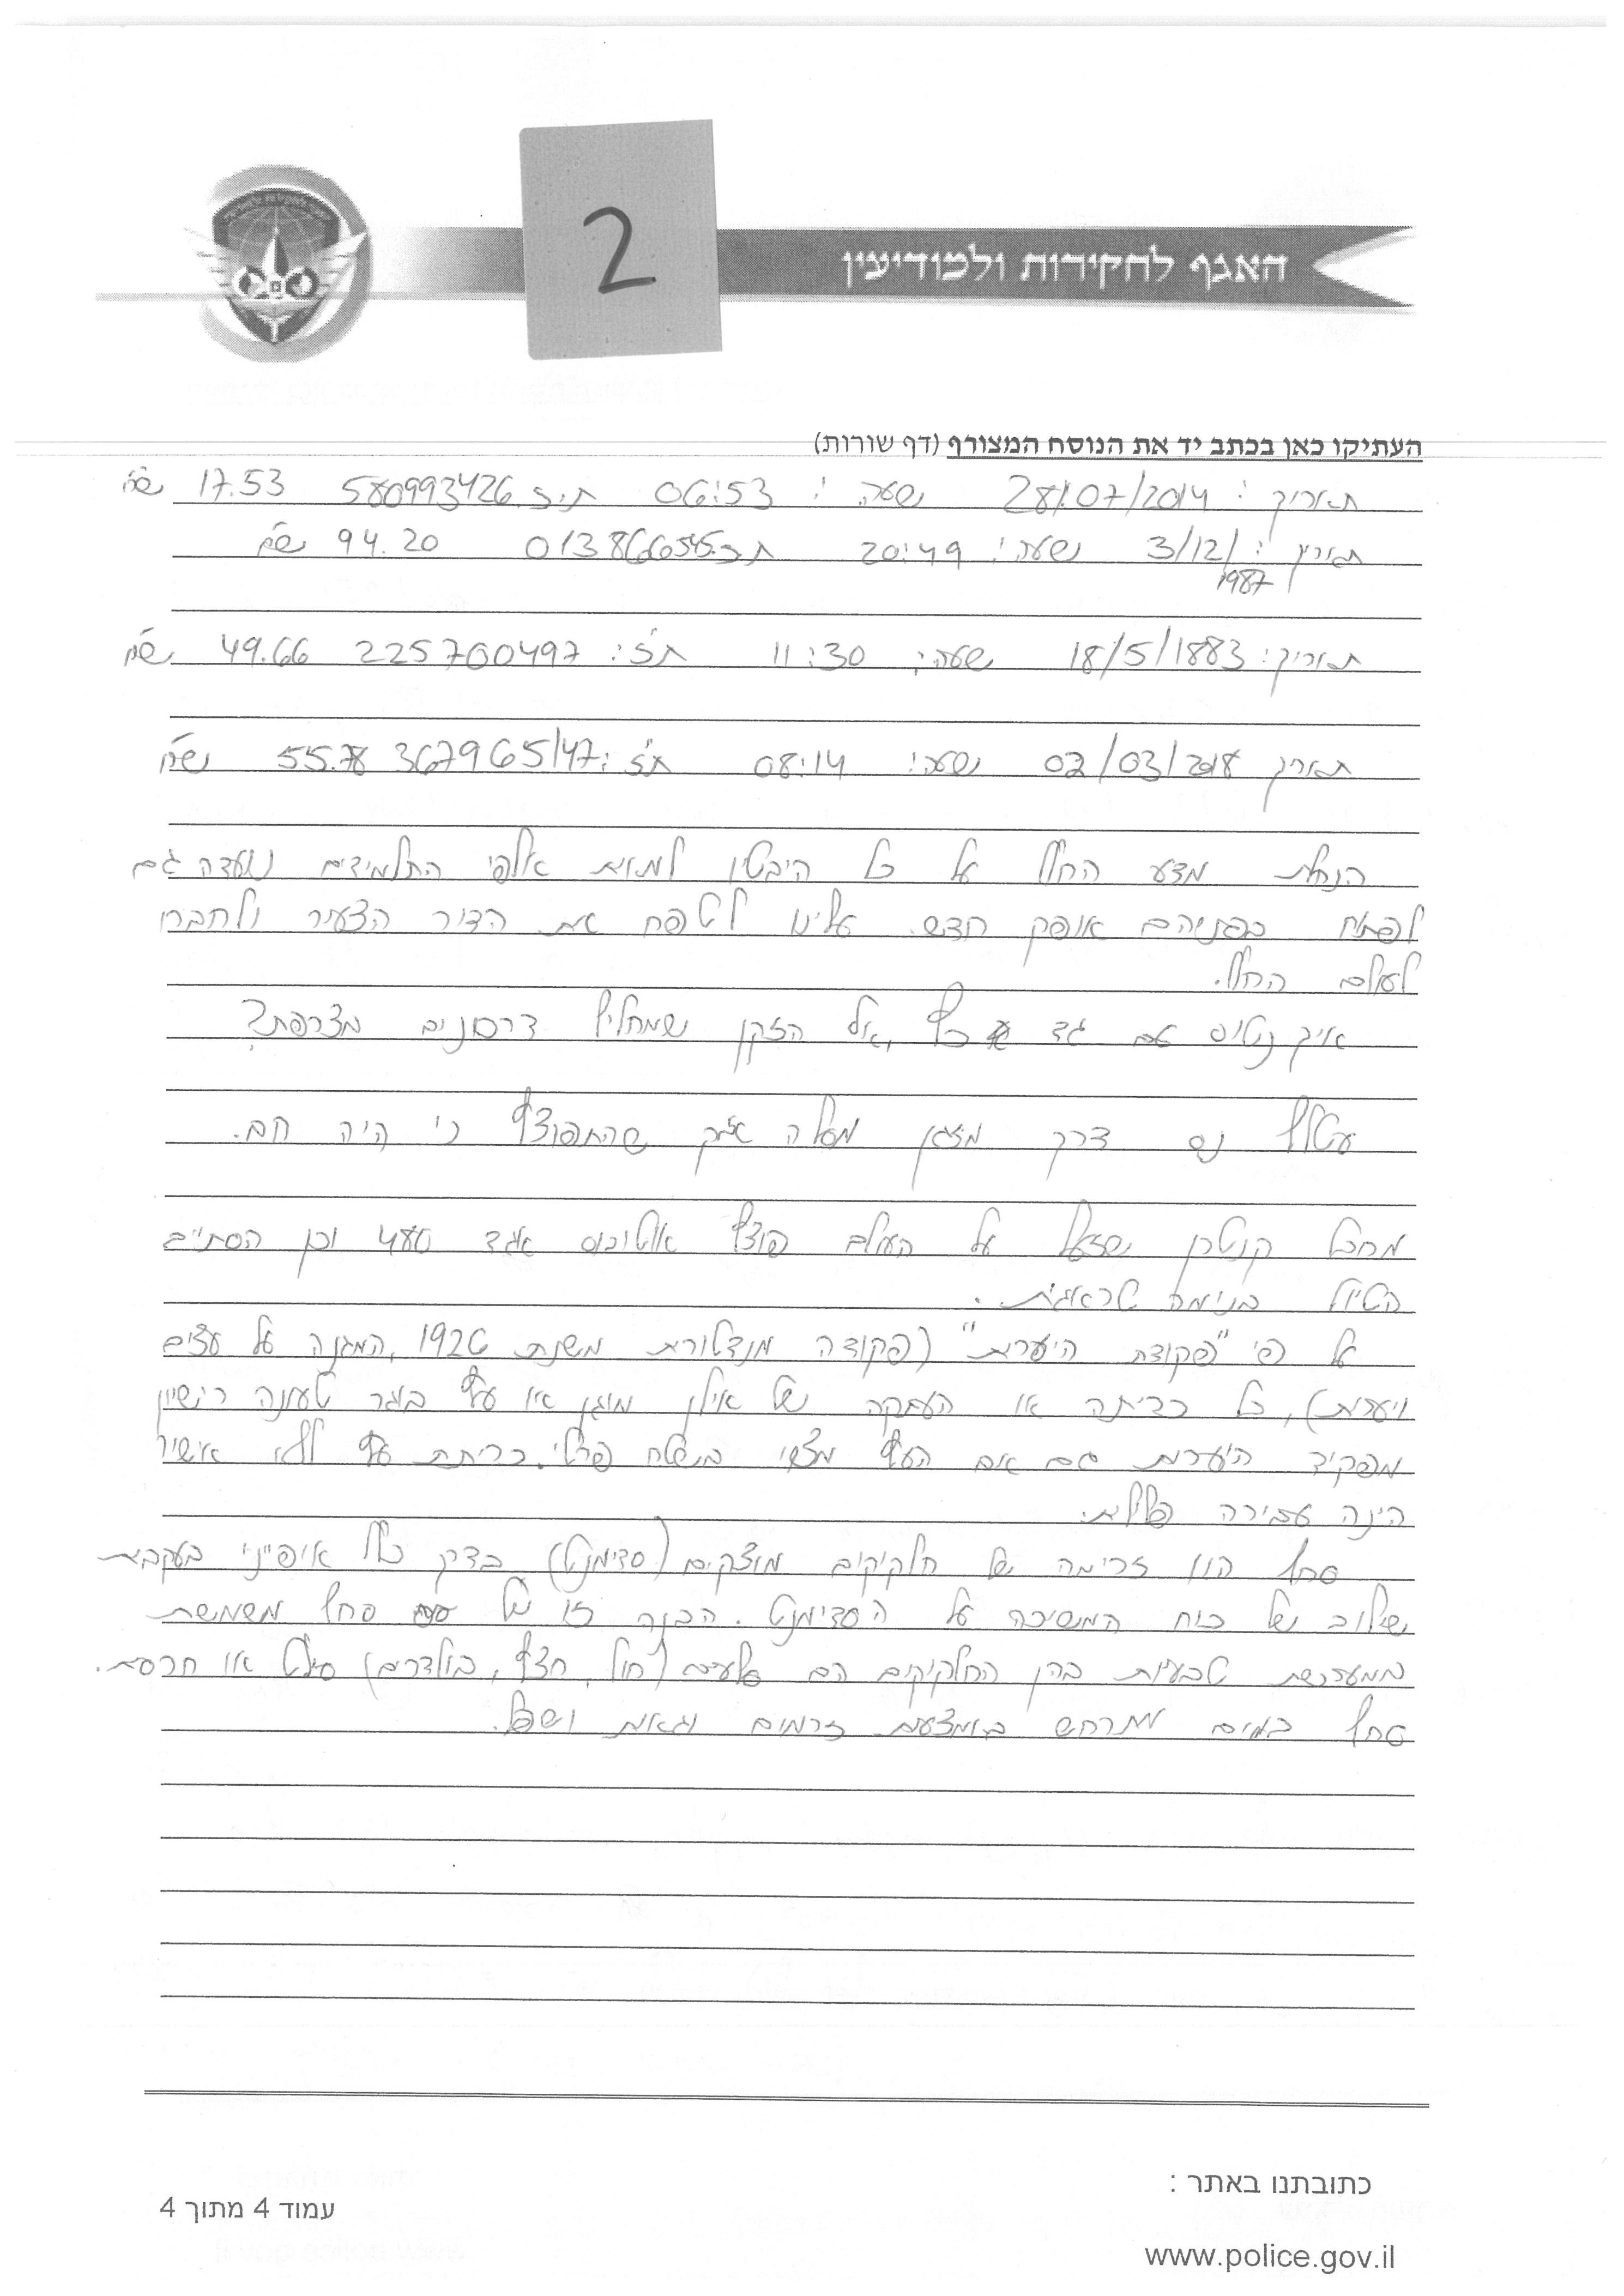 2
האגף לחקירות ולמודיעין
העתיקו כאן בכתב יד את הנוסח המצורף (דף שורות)
תאריך: 28/07/2014 שעה: 06:53 ת.ז 580993426 17.53 ש"ח
תאריך: 3/12/ שעה: 20:49 ת.ז 013866545 94.20 ש"ח
1987
תאריך: 18/5/1883 שעה: 11:30 ת"ז: 225700497 49.66 ש"ח
תאריך 02/03/2018 שעה: 08:14 ת"ז: 367965147 55.78 ש"ח
הנחלת מדע החלל על כל היבטיו למות אלפי התלמידים נועדה גם
לפתוח בפניהם אופק חדש. עלינו לטפח את הדור הצעיר ולחברו
לעולם החלל.
איך נטוס עם גד כץ, אל הזקן שמחליף דרסונים מצרפת?
עטלף נס דרך מזגן מסלה אזק שהתפוצץ כי היה חם.
מחבל קנטרן שזעל על העולם פוצץ אוטובוס אגד 480 וכן הסתיים
הטיול בנימה טראגית.
על פי "פקודת היערות" (פקודה מנדטורית משנת 1926, המגנה על עצים
ויערות), כל כריתה או העתקה של אילן מוגן או עץ בוגר טעונה רישיון
מפקיד היערות גם אם העץ מצוי בשטח פרטי. כריתת עץ ללא אישור
הינה עבירה פלילית.
סחף הוו זרימה של חלקיקים מוצקים (סדימנט) בדרך כלל אופייני בעקבות
שילוב של כוח המשיכה על הסדימנט. הבנה זו של סחף משמשת
במערכות טבעיות בהן החלקיקים הם סלעים (חול, חצץ, בולדרים) סילט או חרסית.
סחף במים מתרחש באמצעות זרמים וגאות ושפל.
כתובתנו באתר :
עמוד 4 מתוך 4
www.police.gov.il